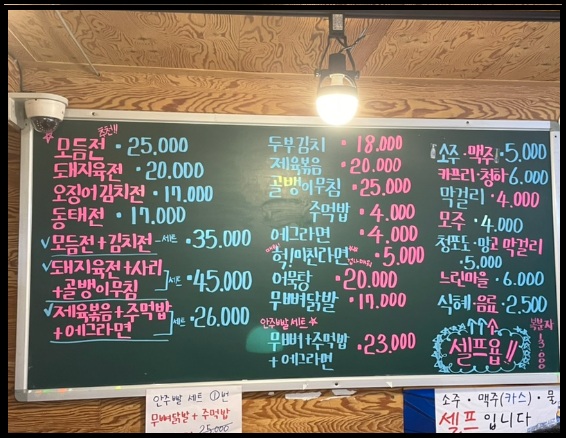 추천!!
모듬전 · 25,000
돼지육전 · 20.000
오징어김치전 · 17.000
동태전 · 17.000
✓모듬전+김치전 -세트 · 35.000
✓돼지육전+사리
+골뱅이무침 세트 · 45,000
✓제육볶음+주먹밥
+에그라면 세트 · 26,000
두부김치 · 18.000
제육볶음 · 20.000
골뱅이무침 · 25.000
주먹밥 · 4.000
에그라면 · 4.000
헉!미친라면 · 5.000
어묵탕 · 20.000
무뼈닭발 · 17.000
안주빨세트☆
무뼈+주먹밥
+에그라면 · 23.000
소주·맥주 · 5,000
카프리·청하 6.000
막걸리 · 4.000
모주 · 4.000
청포도·망고 막걸리
· 5.000
느린마을 · 6.000
식혜·음료 · 2.500
복분자
13.000
셀프욥!!
안주빨 세트 ①번
무뼈닭발+주먹밥
25.000
소주·맥주(카스)·물
셀프입니다